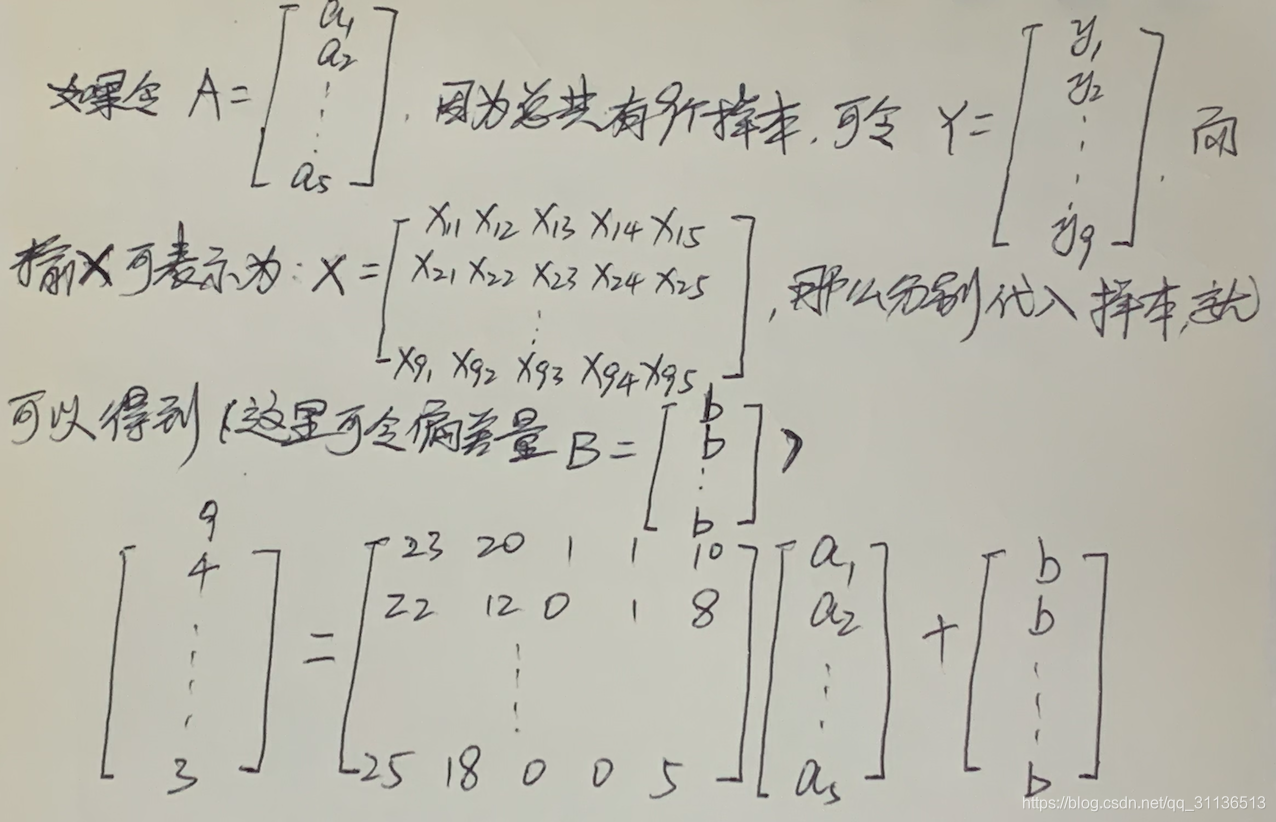 如果令 A = [a₁ a₂ ⋮ a₅] . 因为总共有9个样本, 可令 Y = [y₁ y₂ ⋮ y₉] . 而
输入X可表示为: X = [x₁₁ x₁₂ x₁₃ x₁₄ x₁₅
x₂₁ x₂₂ x₂₃ x₂₄ x₂₅
⋮
x₉₁ x₉₂ x₉₃ x₉₄ x₉₅] , 那么分别代入样本, 就
可以得到 (这里可令偏差量 B = [b b ⋮ b] )
[9 4 ⋮ 3] = [23 20 1 1 10
22 12 0 1 8
⋮
25 18 0 0 5] [a₁ a₂ ⋮ a₅] + [b b ⋮ b]
https://blog.csdn.net/qq_31136513